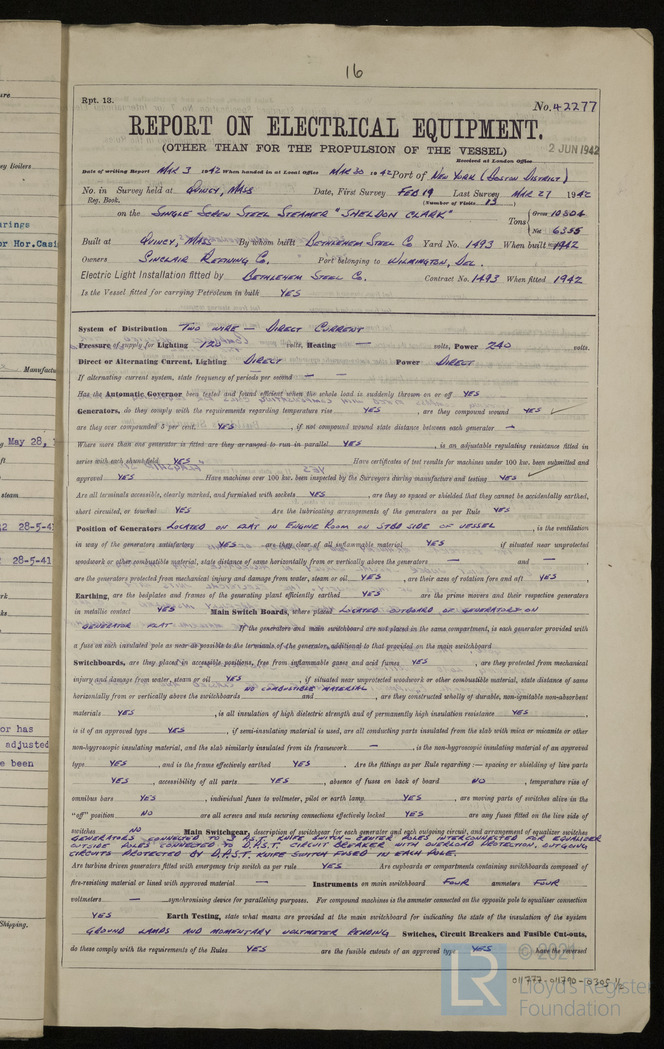 16
Rpt. 13.
No. 42277
REPORT ON ELECTRICAL EQUIPMENT.
(OTHER THAN FOR THE PROPULSION OF THE VESSEL)
2 JUN 1942
Received at London Office
Date of writing Report MAR 3 1942 When handed in at Local Office MAR 30 1942 Port of NEW YORK (BOSTON DISTRICT)
No. in Survey held at QUINCY, MASS Date, First Survey FEB 19 Last Survey MAR 27 1942
Reg. Book. (Number of Visits 13)
on the SINGLE SCREW STEEL STEAMER "SHELDON CLARK" Tons { Gross 10304
Net 6355
Built at QUINCY, MASS By whom built BETHLEHEM STEEL Co Yard No. 1493 When built 1942
Owners SINCLAIR REFINING Co. Port belonging to WILMINGTON, DEL.
Electric Light Installation fitted by BETHLEHEM STEEL Co. Contract No. 1493 When fitted 1942
Is the Vessel fitted for carrying Petroleum in bulk YES
System of Distribution TWO WIRE — DIRECT CURRENT
Pressure of supply for Lighting 120 volts, Heating — volts, Power 240 volts.
Direct or Alternating Current, Lighting DIRECT Power DIRECT
If alternating current system, state frequency of periods per second — —
Has the Automatic Governor been tested and found efficient when the whole load is suddenly thrown on or off YES
Generators, do they comply with the requirements regarding temperature rise YES , are they compound wound YES
are they over compounded 5 per cent. YES , if not compound wound state distance between each generator —
Where more than one generator is fitted are they arranged to run in parallel YES , is an adjustable regulating resistance fitted in
series with each shunt field YES Have certificates of test results for machines under 100 kw. been submitted and
approved YES Have machines over 100 kw. been inspected by the Surveyors during manufacture and testing YES
Are all terminals accessible, clearly marked, and furnished with sockets YES , are they so spaced or shielded that they cannot be accidentally earthed,
short circuited, or touched YES Are the lubricating arrangements of the generators as per Rule YES
Position of Generators LOCATED ON FLAT IN ENGINE ROOM ON STBD SIDE OF VESSEL , is the ventilation
in way of the generators satisfactory YES are they clear of all inflammable material YES if situated near unprotected
woodwork or other combustible material, state distance of same horizontally from or vertically above the generators — and —
are the generators protected from mechanical injury and damage from water, steam or oil YES , are their axes of rotation fore and aft YES
Earthing, are the bedplates and frames of the generating plant efficiently earthed YES are the prime movers and their respective generators
in metallic contact YES Main Switch Boards, where placed LOCATED OUTBOARD OF GENERATORS ON
GENERATOR FLAT If the generators and main switchboard are not placed in the same compartment, is each generator provided with
a fuse on each insulated pole as near as possible to the terminals of the generator, additional to that provided on the main switchboard
Switchboards, are they placed in accessible positions, free from inflammable gases and acid fumes YES , are they protected from mechanical
injury and damage from water, steam or oil YES , if situated near unprotected woodwork or other combustible material, state distance of same
horizontally from or vertically above the switchboards NO COMBUSTIBLE MATERIAL and , are they constructed wholly of durable, non-ignitable non-absorbent
materials YES , is all insulation of high dielectric strength and of permanently high insulation resistance YES ,
is it of an approved type YES , if semi-insulating material is used, are all conducting parts insulated from the slab with mica or micanite or other
non-hygroscopic insulating material, and the slab similarly insulated from its framework — , is the non-hygroscopic insulating material of an approved
type YES , and is the frame effectively earthed YES Are the fittings as per Rule regarding :— spacing or shielding of live parts
YES , accessibility of all parts YES , absence of fuses on back of board NO , temperature rise of
omnibus bars YES , individual fuses to voltmeter, pilot or earth lamp YES , are moving parts of switches alive in the
"off" position NO are all screws and nuts securing connections effectively locked YES are any fuses fitted on the live side of
switches NO Main Switchgear, description of switchgear for each generator and each outgoing circuit, and arrangement of equalizer switches
GENERATORS CONNECTED TO 3 P.S.T. KNIFE SWITCH — CENTER POLES INTERCONNECTED FOR EQUALIZER
OUTSIDE POLES CONNECTED TO D.P.S.T. CIRCUIT BREAKER WITH OVERLOAD PROTECTION, OUTGOING
CIRCUITS PROTECTED BY D.P.S.T. KNIFE SWITCH FUSED IN EACH POLE.
Are turbine driven generators fitted with emergency trip switch as per rule YES Are cupboards or compartments containing switchboards composed of
fire-resisting material or lined with approved material — Instruments on main switchboard FOUR ammeters FOUR
voltmeters — synchronising device for paralleling purposes. For compound machines is the ammeter connected on the opposite pole to equaliser connection
YES Earth Testing, state what means are provided at the main switchboard for indicating the state of the insulation of the system
GROUND LAMPS AND MOMENTARY VOLTMETER READING Switches, Circuit Breakers and Fusible Cut-outs,
do these comply with the requirements of the Rules YES are the fusible cutouts of an approved type YES have the reversed
© 2021
LR
Lloyd's Register
Foundation
ey Boilers
or Hor.Casi
Manufactu
May 28, 1
steam
28-5-41
28-5-41
or has
adjusted
e been
Shipping.